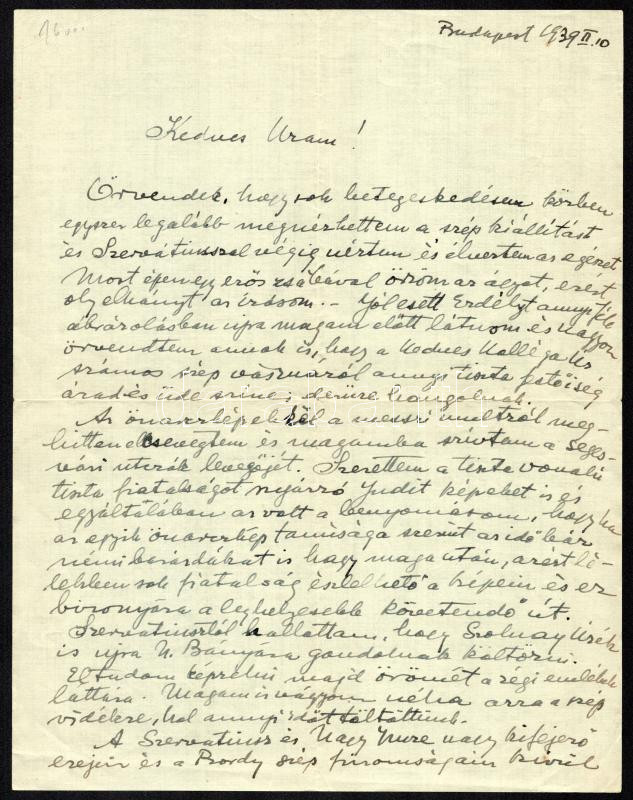 Budapest 1939 II. 10
Kedves Uram!
Örvendek, hogy sok betegeskedésem közben
egyszer legalább megnézhettem a szép kiállítást
és Szervátiusszal végig néztem és élveztem az egészet
Most éppen egy erős zsábával őrzöm az ágyat, ezért
oly elhányt az írásom. - Jól esett Erdélyt annyi féle
ábrázolásban ujra magam előtt látnom és nagyon
örvendtem annak is, hogy a Kedves Kolléga Úr
számos szép vásznáról annyi tiszta festőiség
árad és üde színei derűre hangolnak.
Az önarcképekkel a messzi multról meg-
hitten csevegtem és magamba szívtam a Seges-
vári utcák levegőjét. Szerettem a tiszta vonalú
tiszta fiatalságot Judit képeket is és
egyáltalában az volt a benyomásom, hogy ha
az egyik önarckép tanúsága szerint az idő bár
némi barázdákat is hagy maga után, azért lé-
lekben sok fiatalság észlelhető a képein és ez
bizonyára a leghelyesebb követendő út.
Szervátiusztól hallottam, hogy Szolnay Uzék
is ujra N. Bányára gondolnak költözni.
El tudom képzelni majd örömét a régi emlékek
láttára. Magam is vágyom néha arra a szép
vidékre, hol annyi időt töltöttünk.
A Szervátiusz és Nagy Imre nagy kifejező
erején és a Bordy szép finomságain kívül